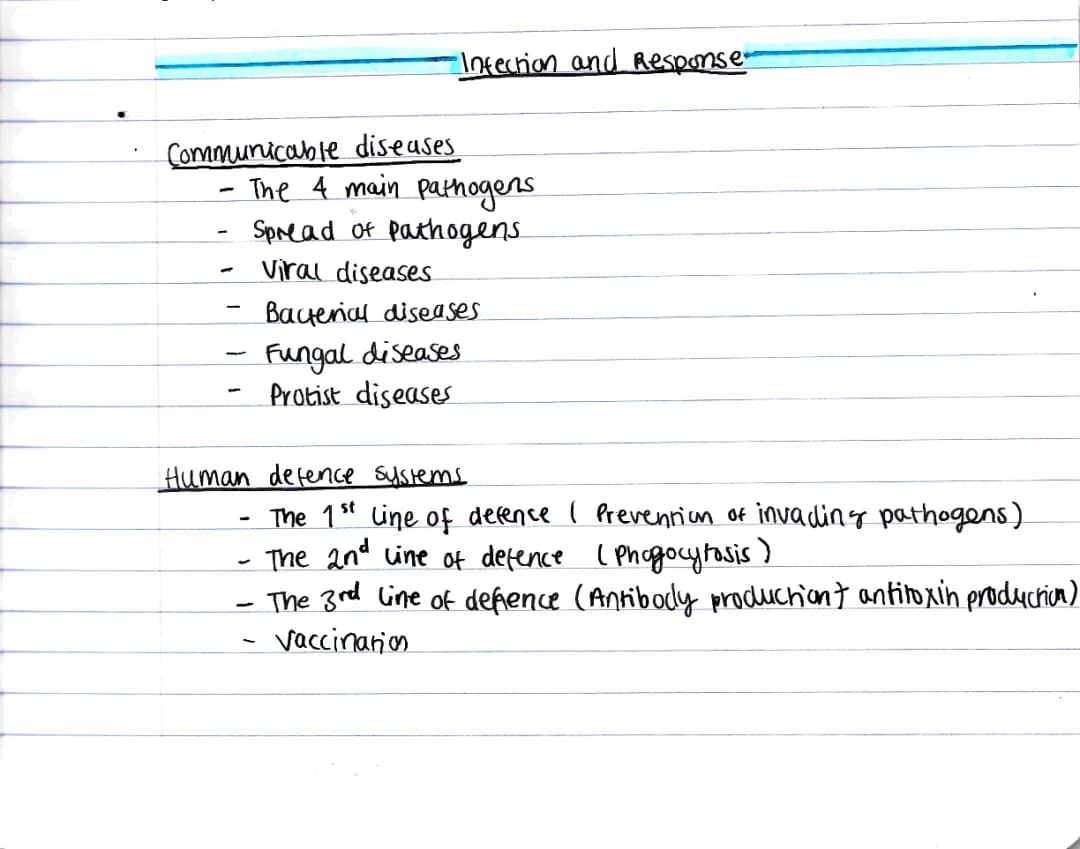 Infection and Response
Communicable diseases
- The 4 main pathogens
- Spread of pathogens
- Viral diseases
- Bacterial diseases
- Fungal diseases
- Protist diseases
Human defence systems
- The 1st line of defence ( Prevention of invading pathogens)
- The 2nd line of defence ( Phagocytosis )
- The 3rd line of defence (Antibody production + antitoxin production)
- Vaccination